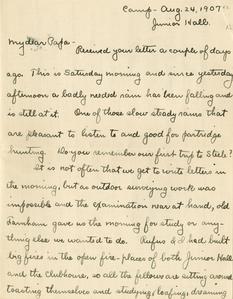 Camp - Aug. 24, 1907
Junior Hall.
My dear Papa -
Received your letter a couple of days
ago. This is Saturday morning and since yesterday
afternoon a badly needed rain has been falling and
is still at it. One of those slow steady rains that
are pleasant to listen to and good for partridge
hunting. Do you remember our first trip to Steels?
It is not often that we get to write letters in
the morning, but as outdoor surveying work was
impossible and the examination near at hand, old
Lanham gave us the morning for study or any-
thing else we wanted to do. Rufus & I had built
big fires in the open fire-places of both Junior Hall
and the clubhouse, so all the fellows are sitting around
toasting themselves and studying, loafing, dreaming